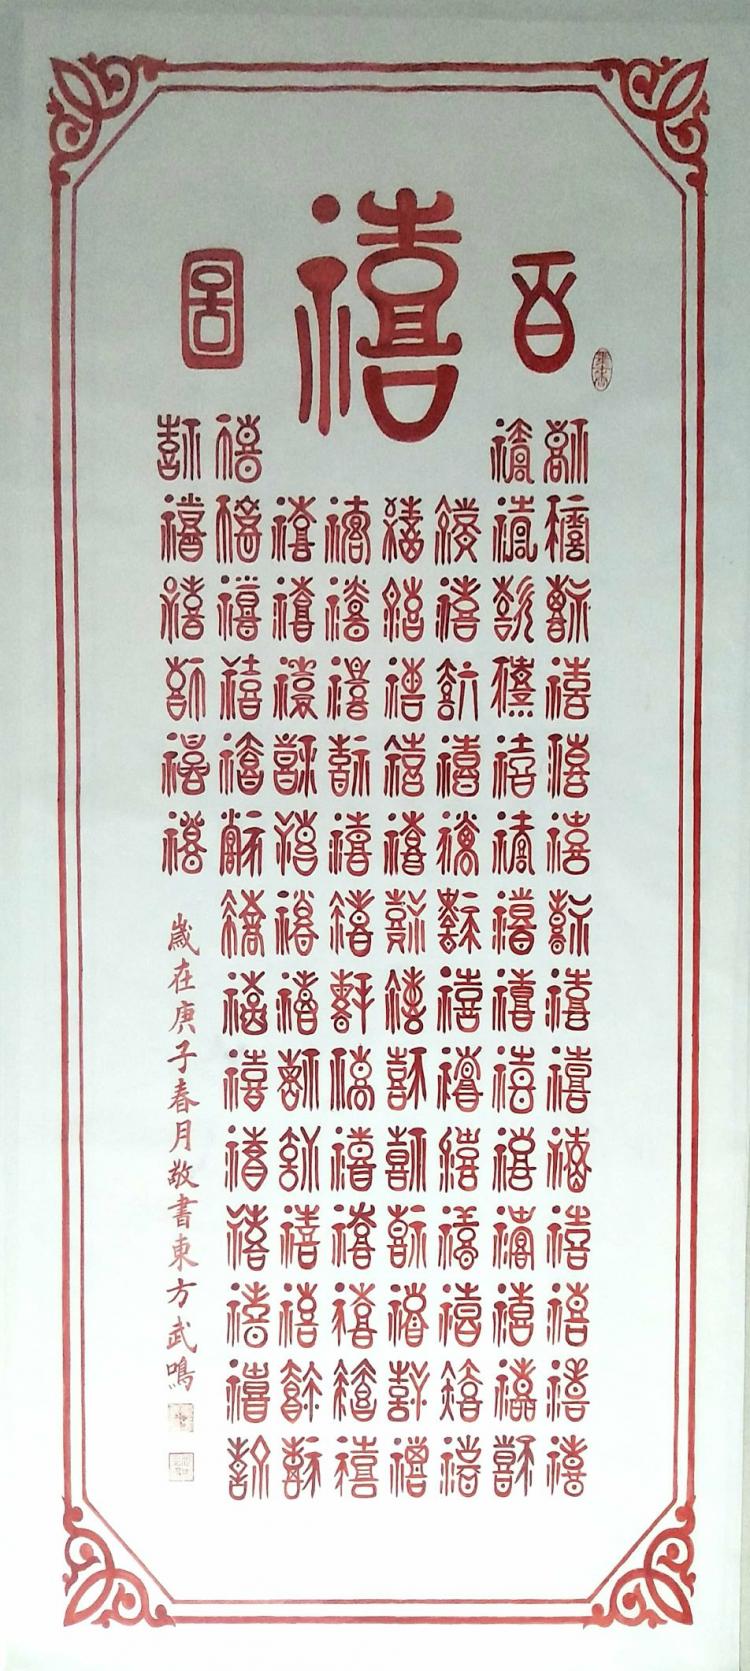 百禧圖
禧禧禧禧禧禧禧禧禧禧禧禧禧禧
禧禧禧禧禧禧禧禧禧禧禧禧禧禧
禧禧禧禧禧禧禧禧禧禧禧禧禧
禧禧禧禧禧禧禧禧禧禧禧禧禧
禧禧禧禧禧禧禧禧禧禧禧禧禧
禧禧禧禧禧禧禧禧禧禧禧禧禧
禧禧禧禧禧禧禧禧禧禧禧禧禧禧
禧禧禧禧禧禧
歲在庚子春月敬書東方武鳴